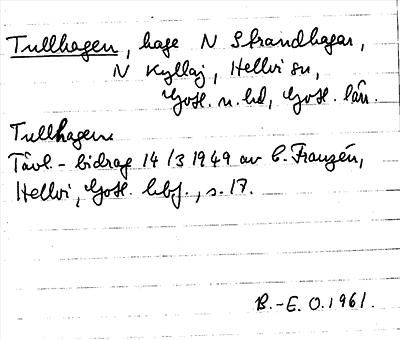 Tullhagen, hage N Strandhagar,
N Kyllaj, Hellvi sn,
Gotl. n. hd, Gotl. län.
Tullhagen.
Tävl.-bidrag 14/3 1949 av C. Franzén,
Hellvi, Gotl. hbf., s. 17.
B.-E. O. 1961.